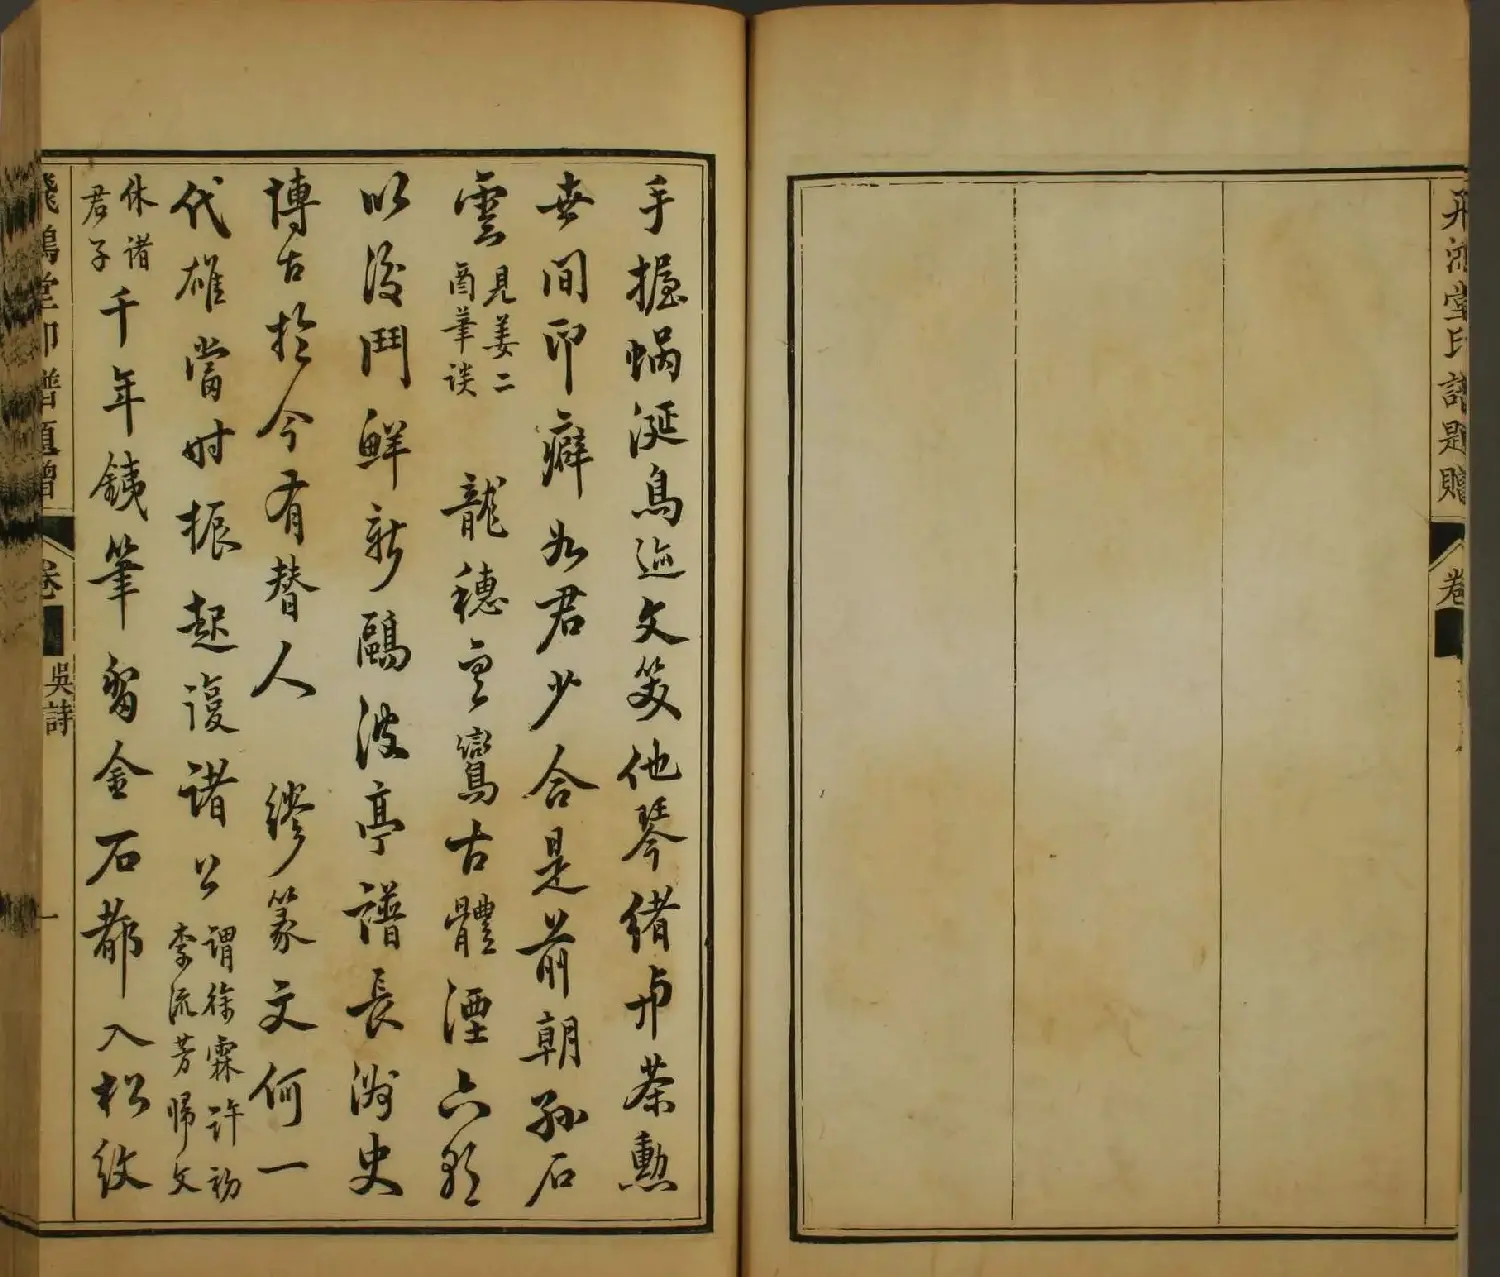 飛鴻堂印譜題贈 卷
手握蝸涎鳥迹文笑他琴緒與茶勳
世間印癖如君少合是前朝孫石
雲 見姜二
酉筆談
龍穗雲鸞古體湮六朝
以後鬥鮮新鷗波亭譜長史
博古於今有替人 繆篆文何一
代雄當時振起復諸公 謂徐霖許初
李流芳歸文
休諸
君子
千年銕筆留金石都入松紋
飛鴻堂印譜題贈 卷 吳詩 一